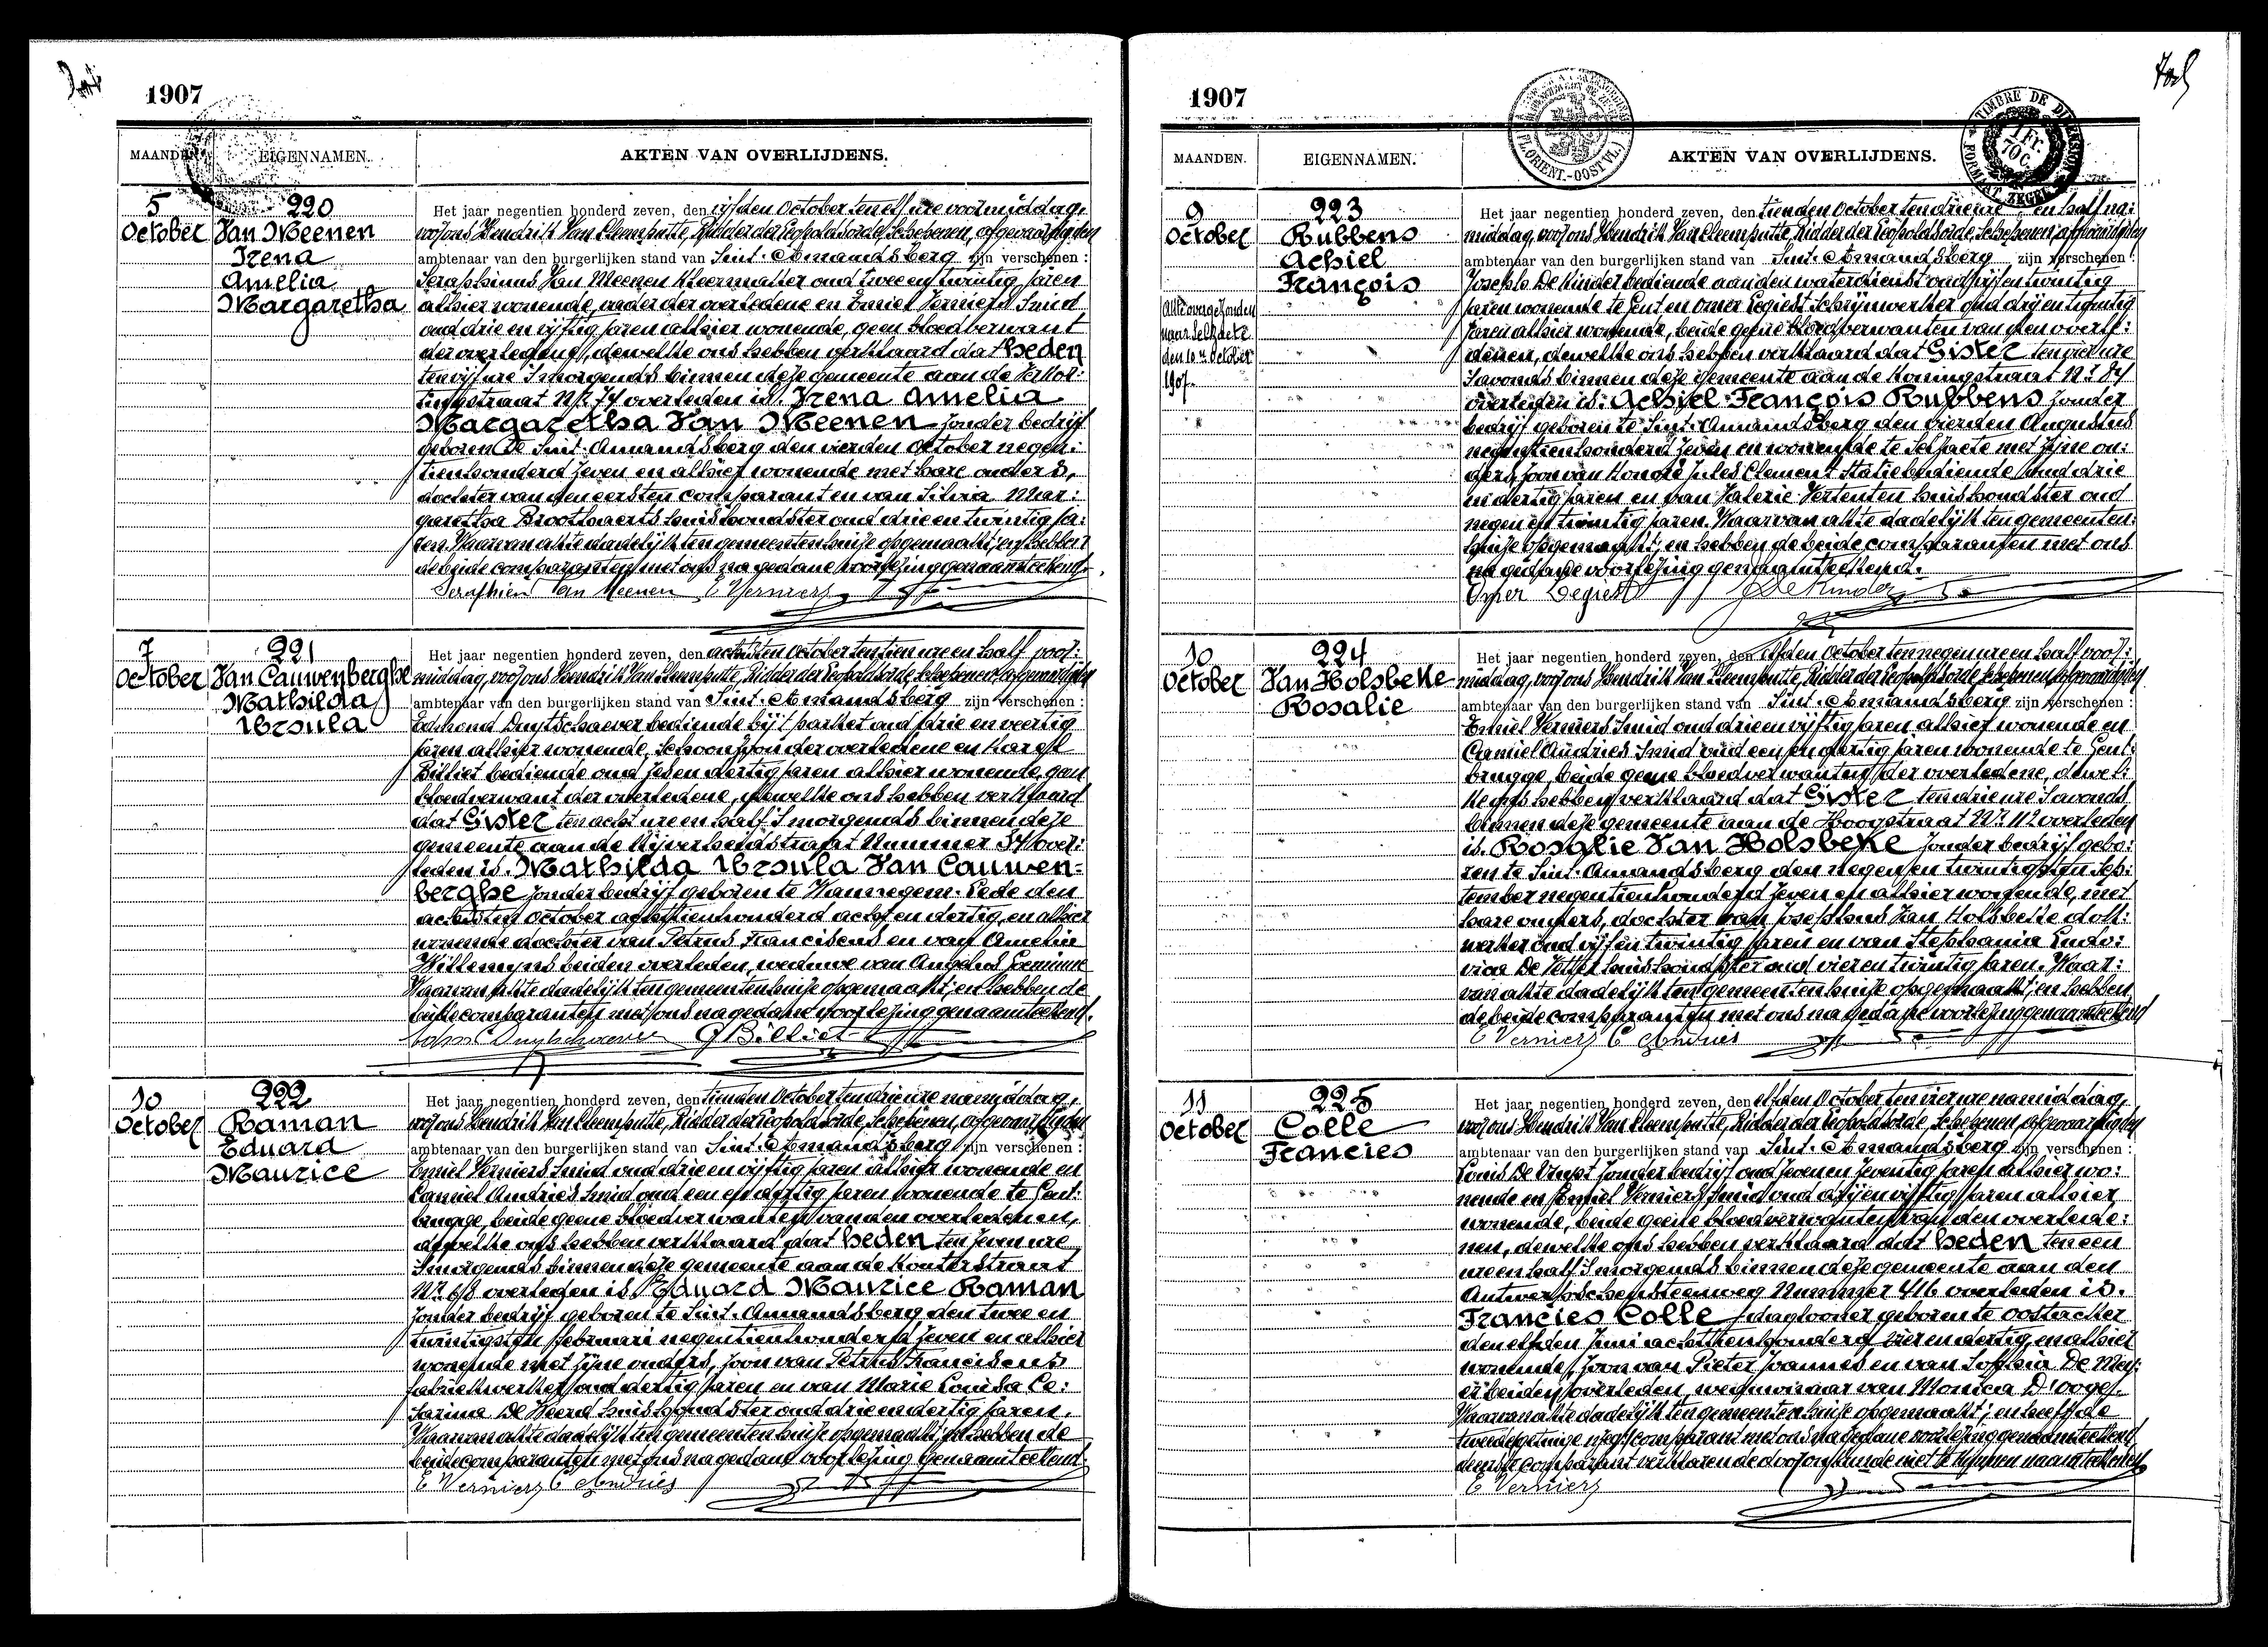 1907
MAANDEN. EIGENNAMEN. AKTEN VAN OVERLIJDENS.
5 October
220
Van Meenen
Irena
Amelia
Margaretha
Het jaar negentien honderd zeven, den vijfden October ten elf ure voormiddag,
voor ons Hendrik Van Cleemputte, Ridder der Leopoldsorde, Schepenen, afgevaardigden
ambtenaar van den burgerlijken stand van Sint-Amandsberg zijn verschenen:
Seraphinus Van Meenen kleermaker oud twee en twintig jaren
alhier wonende, vader der overledene en Emiel Verniers Smid
oud drie en vijftig jaren alhier wonende, geen bloedverwant
der overledene, dewelke ons hebben verklaard dat heden
ten vijf ure 's morgends binnen deze gemeente aan de
Nr 74 overleden is. Irena Amelia
Margaretha Van Meenen zonder bedrijf
geboren te Sint-Amandsberg den vierden October negen:
tienhonderd zeven en alhier wonende met hare ouders,
dochter van den eersten comparant en van Silvia Mar:
garetha Broothaerts huishoudster oud drie en twintig ja:
ren. Waarvan akte dadelijk ten gemeentenhuize opgemaakt; en hebben
de beide comparanten met ons na gedane voorlezing genaamteekend.
Seraphien Van Meenen E Verniers
7 October
221
Van Cauwenberghe
Mathilda
Ursula
Het jaar negentien honderd zeven, den achtsten October ten tien ure en half voor:
middag, voor ons Hendrik Van Cleemputte, Ridder der Leopoldsorde, Schepenen, afgevaardigden
ambtenaar van den burgerlijken stand van Sint-Amandsberg zijn verschenen:
Edmond Duytschaever bediende bij 't parket oud drie en veertig
jaren alhier wonende, schoonzoon der overledene en Karel
Billiet bediende oud zes en dertig jaren alhier wonende, geen
bloedverwant der overledene, dewelke ons hebben verklaard
dat Gister ten acht ure en half 's morgends binnen deze
gemeente aan de Nijverheidstraat Nummer 34 over:
leden is. Mathilda Ursula Van Cauwen=
berghe zonder bedrijf geboren te Wannegem-Lede den
achtsten October achttienhonderd acht en dertig, en alhier
wonende dochter van Petrus Franciscus en van Amelie
Willemyns beiden overleden, weduwe van
Waarvan akte dadelijk ten gemeentenhuize opgemaakt; en hebben de
beide comparanten met ons na gedane voorlezing genaamteekend.
Edm. Duytschaever G Billiet
10 October
222
Raman
Eduard
Maurice
Het jaar negentien honderd zeven, den tienden October ten drie ure namiddag,
voor ons Hendrik Van Cleemputte, Ridder der Leopoldsorde, Schepenen, afgevaardigden
ambtenaar van den burgerlijken stand van Sint-Amandsberg zijn verschenen:
Emiel Verniers Smid oud drie en vijftig jaren alhier wonende en
Camiel Andries Smid oud een en dertig jaren wonende te Gent:
brugge, beide geene bloedverwanten van den overledenen,
dewelke ons hebben verklaard dat heden ten zeven ure
's morgends binnen deze gemeente aan de Kouterstraat
Nr 68 overleden is Eduard Maurice Raman
zonder bedrijf geboren te Sint-Amandsberg den twee en
twintigsten Februari negentienhonderd zeven en alhier
wonende met zijne ouders, zoon van Petrus Franciscus
fabriekwerker oud dertig jaren en van Marie Louisa Ce:
sarina De Weerd huishoudster oud drie en dertig jaren.
Waarvan akte dadelijk ten gemeentenhuize opgemaakt; en hebben de
beide comparanten met ons na gedane voorlezing genaamteekend.
E Verniers C Andries
1907
TIMBRE DE DIMENSION
1 FR. 70 C.
MAANDEN. EIGENNAMEN. AKTEN VAN OVERLIJDENS.
9 October
223
Rubbens
Achiel
François
Akte overgezonden
naar Selzaete
den 10n October
1907.
Het jaar negentien honderd zeven, den tienden October ten drie ure en half na:
middag, voor ons Hendrik Van Cleemputte, Ridder der Leopoldsorde, Schepenen, afgevaardigden
ambtenaar van den burgerlijken stand van Sint-Amandsberg zijn verschenen:
Josephs De Kinder bediende aan den waterdienst oud vijf en twintig
jaren wonende te Gent en Omer Legiest Schrijnwerker oud drij en twintig
jaren alhier wonende, beide geene bloedverwanten van den overle:
denen, dewelke ons hebben verklaard dat Gister ten vier ure
's avonds binnen deze gemeente aan de Koningstraat Nr 84
overleden is: Achiel François Rubbens zonder
bedrijf geboren te Sint-Amandsberg den vierden Augustus
negentienhonderd zeven en wonende te Selzaete met zijne ou:
ders, zoon van Honoré Jules Clement Statiebediende oud drie
en dertig jaren en van Valerie Vertenten huishoudster oud
negen en twintig jaren. Waarvan akte dadelijk ten gemeenten:
huize opgemaakt; en hebben de beide comparanten met ons
na gedane voorlezing genaamteekend.
Omer Legiest J De Kinder
10 October
224
Van Holsbeke
Rosalie
Het jaar negentien honderd zeven, den elfden October ten negen ure en half voor:
middag, voor ons Hendrik Van Cleemputte, Ridder der Leopoldsorde, Schepenen, afgevaardigden
ambtenaar van den burgerlijken stand van Sint-Amandsberg zijn verschenen:
Emiel Verniers Smid oud drie en vijftig jaren alhier wonende en
Camiel Andries Smid oud een en dertig jaren wonende te Gent:
brugge, beide geene bloedverwanten der overledene, dewel:
ke ons hebben verklaard dat Gister ten drie ure 's avonds
binnen deze gemeente aan de Hoogstraat Nr 112 overleden
is. Rosalie Van Holsbeke zonder bedrijf gebo:
ren te Sint-Amandsberg den negen en twintigsten Sep:
tember negentienhonderd zeven en alhier wonende, met
hare ouders, dochter van Josephus Van Holsbeke dok:
werker oud vijf en twintig jaren en van Stephania Ludo:
vica De Vetter huishoudster oud vier en twintig jaren. Waar:
van akte dadelijk ten gemeentenhuize opgemaakt; en hebben
de beide comparanten met ons na gedane voorlezing genaamteekend
E Verniers C Andries
11 October
225
Colle
Francies
Het jaar negentien honderd zeven, den elfden October ten vier ure namiddag,
voor ons Hendrik Van Cleemputte, Ridder der Leopoldsorde, Schepenen, afgevaardigden
ambtenaar van den burgerlijken stand van Sint-Amandsberg zijn verschenen:
Louis De zonder bedrijf oud zeven en zeventig jaren alhier wo:
nende en Emiel Verniers Smid oud drij en vijftig jaren alhier
wonende, beide geene bloedverwanten van den overlede:
nen, dewelke ons hebben verklaard dat heden ten een
ure en half 's morgends binnen deze gemeente aan den
Antwerpschensteenweg Nummer 416 overleden is.
Francies Colle daglooner geboren te Oostacker
den elfden Juni achttienhonderd vier en dertig, en alhier
wonende, zoon van Pieter Joannes en van Sophia De Mey:
er beiden overleden, weduwnaar van Monica D'ooge.
Waarvan akte dadelijk ten gemeentenhuize opgemaakt; en heeft de
tweede comparant met ons na gedane voorlezing genaamteekend
den eerste comparant verklarende door ons aanzocht niet te kunnen naamteekenen
E Verniers